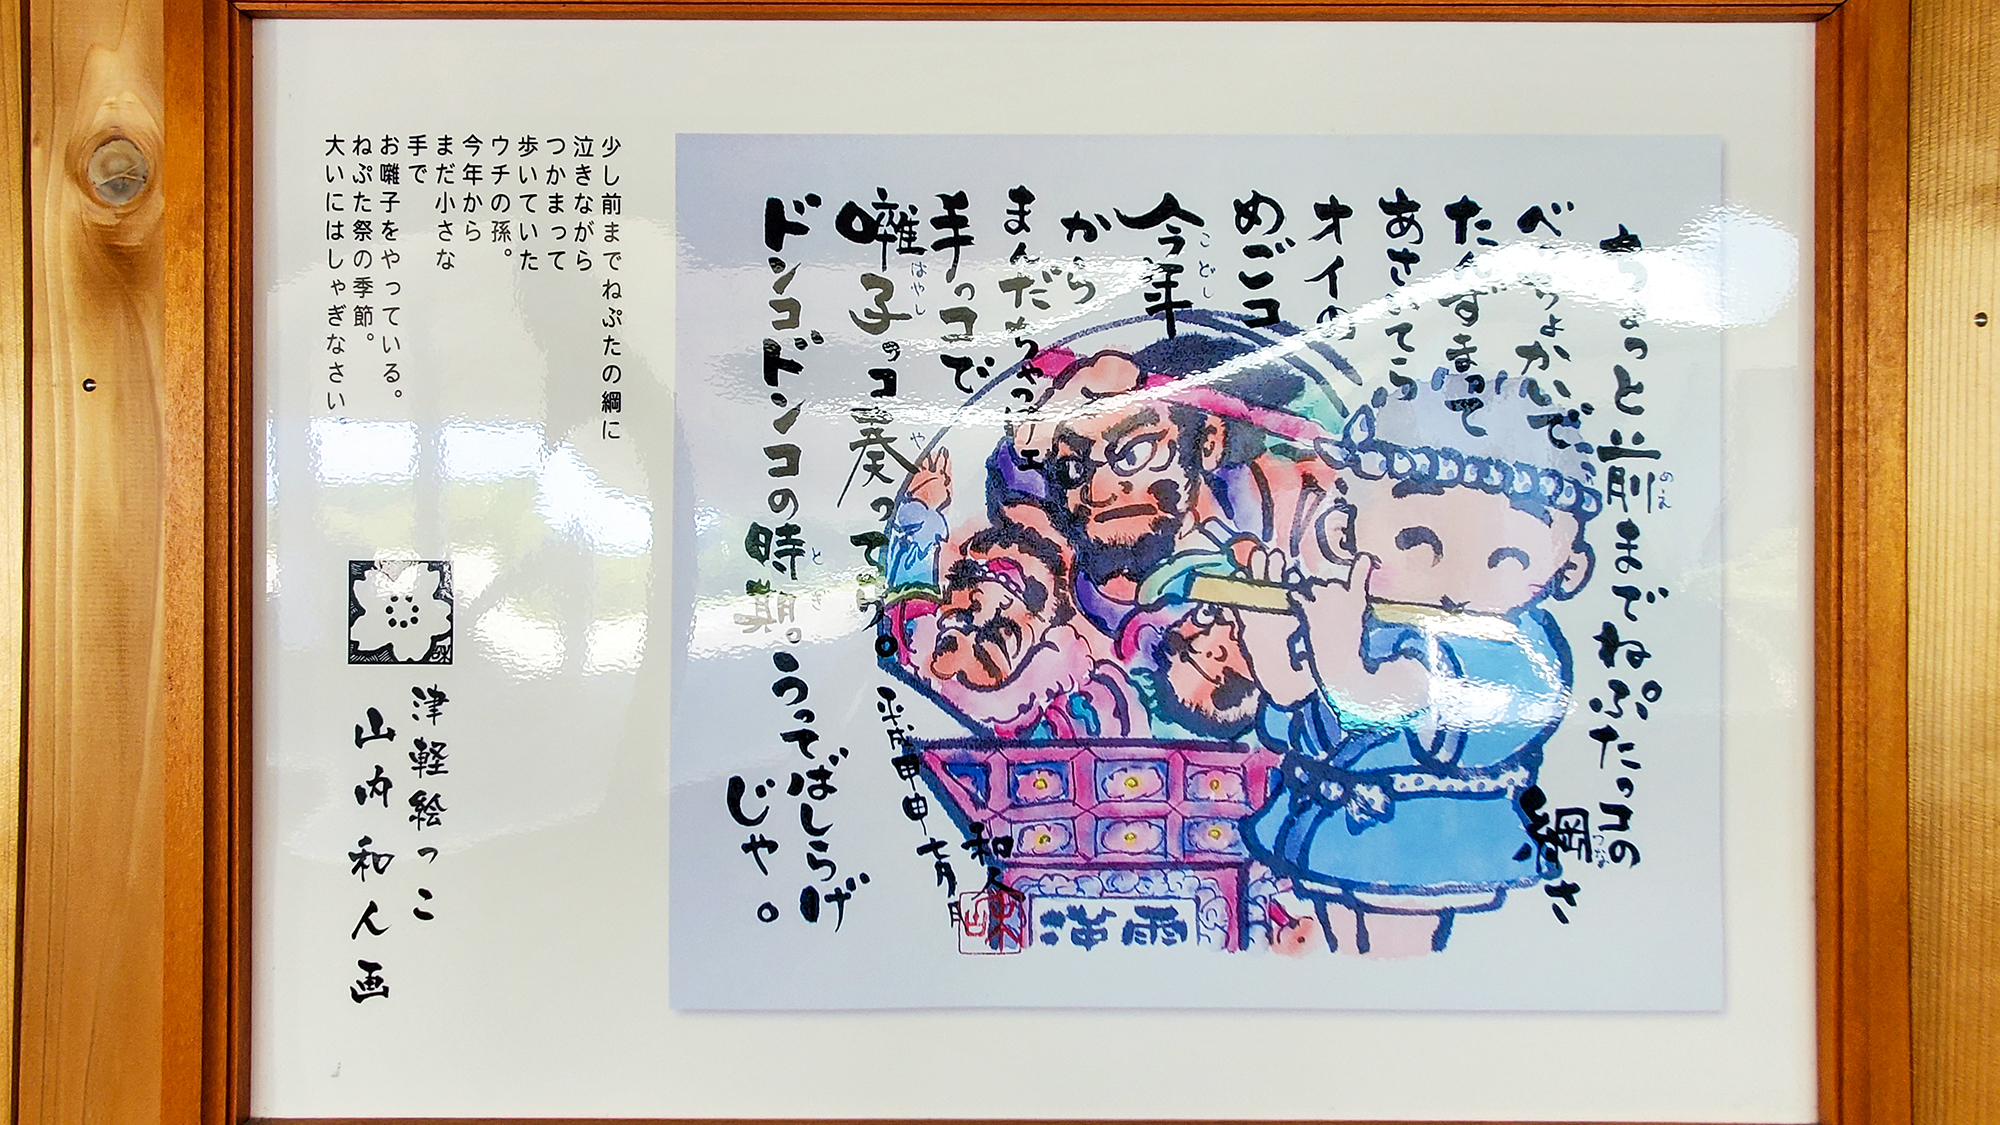 ちょっと前までねぷたっコの
綱さ
べちょかいで
たんずまって
あさいてら
オイの
めごコ
今年
から
まんだちゃっけェ
手っコで
囃子っコ奏ってら。
ドンコドンコの時期。うってばしらげ
じゃ。
めえ
つな
こどし
はやし
や
とき
平成甲申七月
和人
雲漢
少し前までねぷたの綱に
泣きながら
つかまって
歩いていた
ウチの孫。
今年から
まだ小さな
手で
お囃子をやっている。
ねぷた祭の季節。
大いにはしゃぎなさい
津軽絵っこ
山内和人画